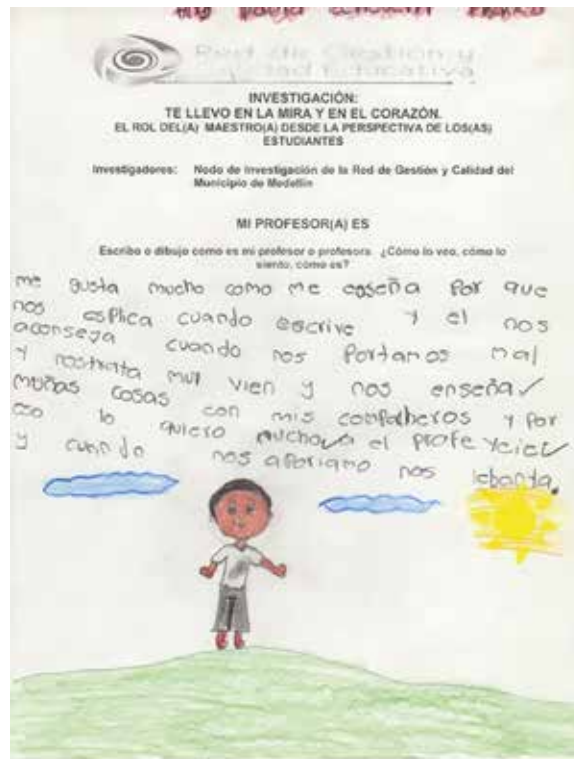 Red de Gestión y
Calidad Educativa
INVESTIGACIÓN:
TE LLEVO EN LA MIRA Y EN EL CORAZÓN.
EL ROL DEL(A) MAESTRO(A) DESDE LA PERSPECTIVA DE LOS(AS)
ESTUDIANTES
Investigadores: Nodo de Investigación de la Red de Gestión y Calidad del
Municipio de Medellín
MI PROFESOR(A) ES
Escribo o dibujo como es mi profesor o profesora. ¿Cómo lo veo, cómo lo
siento, cómo es?
me gusta mucho como me enseña Por que
nos esplica cuando escrive y el nos
aconseja cuando nos Portamos mal
y nostrata muy vien y nos enseña
muñas cosas con mis compañeros y Por
eso lo quiero mucho a el profe
y cuando nos nos lebanta.